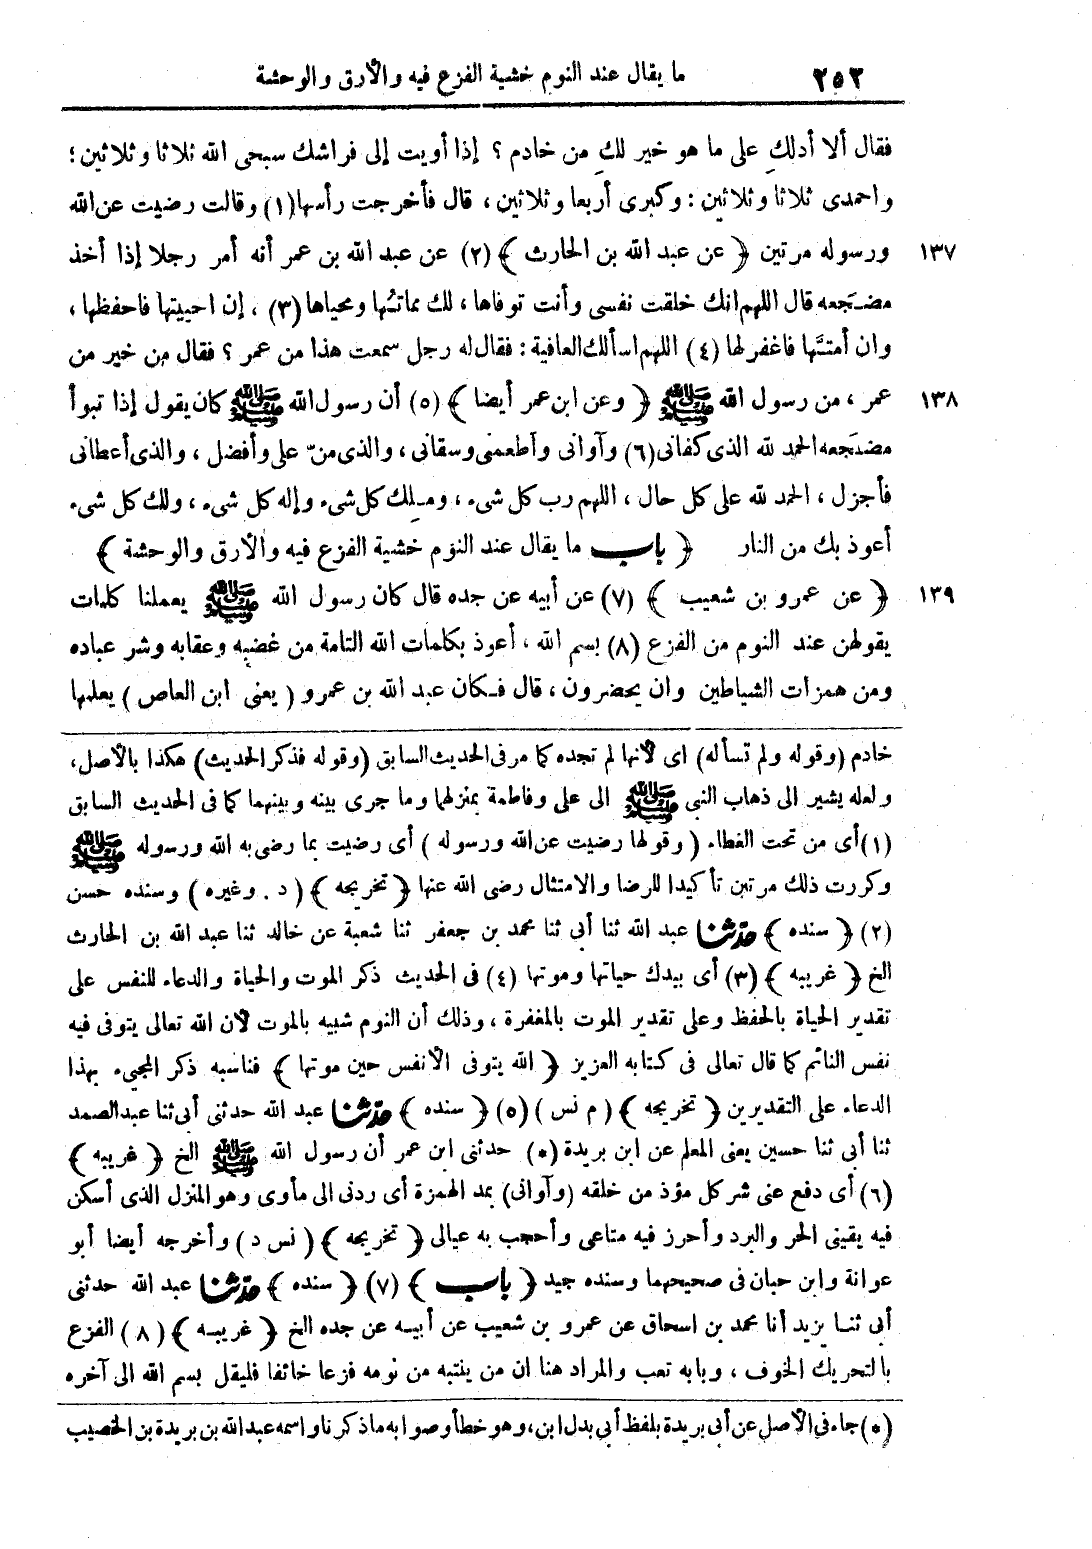 ٢٥٢ ما يقال عند النوم خشية الفزع فيه والأرق والوحشة
فقال ألا أدلكِ على ما هو خير لكِ من خادم ؟ إذا أويت إلى فراشك سبحى الله ثلاثا وثلاثين ؛
واحمدى ثلاثا وثلاثين : وكبرى أربعا وثلاثين ، قال فأخرجت رأسها (١) وقالت رضيت عن الله
١٣٧ ورسوله مرتين ﴿ عن عبد الله بن الحارث ﴾ (٢) عن عبد الله بن عمر أنه أمر رجلا إذا أخذ
مضجعه قال اللهم انك خلقت نفسى وأنت توفاها ، لك مماتها ومحياها (٣) ، إن احييتها فاحفظها ،
وان أمتَّها فاغفر لها (٤) اللهم اسألك العافية : فقال له رجل سمعت هذا من عمر ؟ فقال من خير من
١٣٨ عمر ، من رسول الله ﷺ ﴿ وعن ابن عمر أيضا ﴾ (٥) أن رسول الله ﷺ كان يقول إذا تبوأ
مضجعه الحمد لله الذى كفانى (٦) وآوانى وأطعمنى وسقانى ، والذى منّ على وأفضل ، والذى أعطانى
فأجزل ، الحمد لله على كل حال ، اللهم رب كل شىء ، ومـلك كل شىء وإله كل شىء ، ولك كل شىء
أعوذ بك من النار ﴿ باب ما يقال عند النوم خشية الفزع فيه والأرق والوحشة ﴾
١٣٩ ﴿ عن عمرو بن شعيب ﴾ (٧) عن أبيه عن جده قال كان رسول الله ﷺ يعملنا كلمات
يقولهن عند النوم من الفزع (٨) بسم الله ، أعوذ بكلمات الله التامة من غضبه وعقابه وشر عباده
ومن همزات الشياطين وان يحضرون ، قال فـكان عبد الله بن عمرو ( يعنى ابن العاص ) يعلمها
خادم (وقوله ولم تسأله) اى لأنها لم تجده كما مر فى الحديث السابق (وقوله فذكر الحديث) هكذا بالأصل،
ولعله يشير الى ذهاب النبى ﷺ الى على وفاطمة بمنزلها وما جرى بينه وبينهما كما فى الحديث السابق
(١) أى من تحت الغطاء ( وقولها رضيت عن الله ورسوله ) أى رضيت بما رضى به الله ورسوله ﷺ
وكررت ذلك مرتين تأكيدا للرضا والامتثال رضى الله عنها ﴿ تخريجه ﴾ ( د . وغيره ) وسنده حسن
(٢) ﴿ سنده ﴾ حدّثنا عبد الله ثنا أبى ثنا محمد بن جعفر ثنا شعبة عن خالد ثنا عبد الله بن الحارث
الخ ﴿ غريبه ﴾ (٣) أى بيدك حياتها وموتها (٤) فى الحديث ذكر الموت والحياة والدعاء للنفس على
تقدير الحياة بالحفظ وعلى تقدير الموت بالمغفرة ، وذلك أن النوم شبيه بالموت لأن الله تعالى يتوفى فيه
نفس النائم كما قال تعالى فى كتابه العزيز ﴿ الله يتوفى الأنفس حين موتها ﴾ فناسبه ذكر المجيء بهذا
الدعاء على التقديرين ﴿ تخريجه ﴾ ( م نس ) (٥) ﴿ سنده ﴾ حدّثنا عبد الله حدثنى أبى ثنا عبد الصمد
ثنا أبى ثنا حسين يعنى المعلم عن ابن بريدة (*) حدثنى ابن عمر أن رسول الله ﷺ الخ ﴿ غريبه ﴾
(٦) أى دفع عنى شر كل مؤذ من خلقه (وآوانى) بمد الهمزة أى ردنى الى مأوى وهو المنزل الذى أسكن
فيه يقينى الحر والبرد وأحرز فيه متاعى وأحجب به عيالى ﴿ تخريجه ﴾ ( نس د ) وأخرجه أيضا أبو
عوانة وابن حبان فى صحيحهما وسنده جيد ﴿ باب ﴾ (٧) ﴿ سنده ﴾ حدّثنا عبد الله حدثنى
أبى ثنـا يزيد أنا محمد بن اسحاق عن عمرو بن شعيب عن أبيـه عن جده الخ ﴿ غريبـه ﴾ (٨) الفزع
بالتحريك الخوف ، وبابه تعب والمراد هنا ان من ينتبه من نومه فزعا خائفا فليقل بسم الله الى آخره
(*) جاء فى الأصل عن أبى بريدة بلفظ أبى بدل ابن، وهو خطأ وصوابه ماذكرنا واسمه عبد الله بن بريدة بن الحصيب